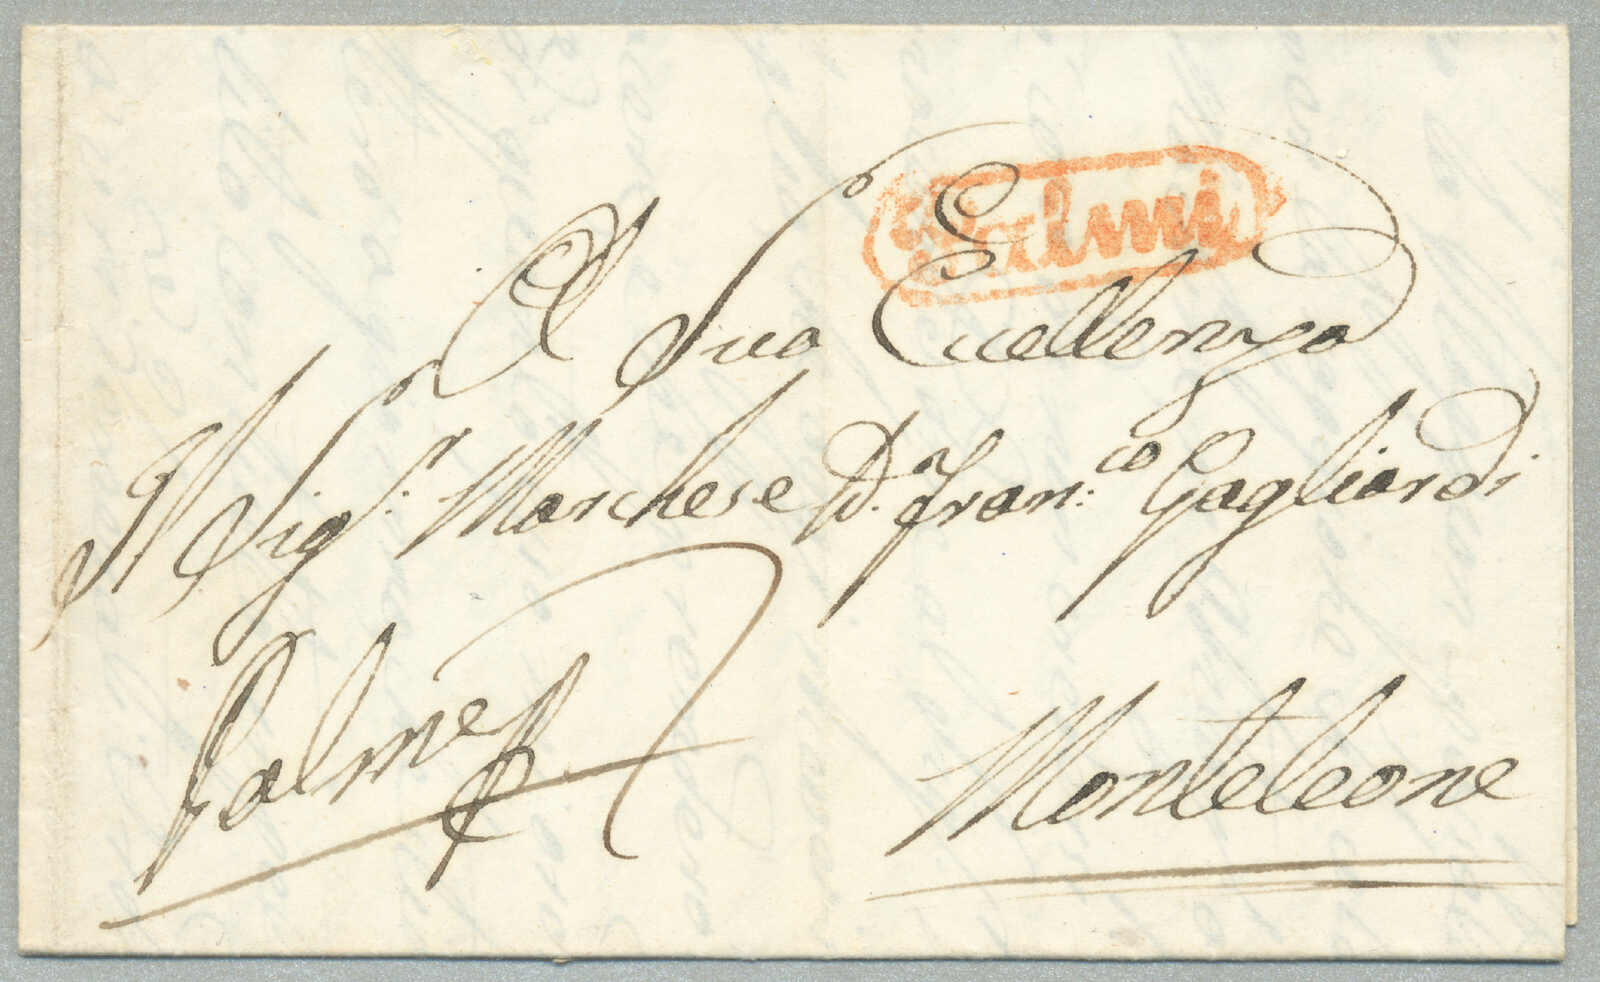 Palmi
A Sua Eccellenza
Il Sig.r Marchese D. Fran:co Gagliardi
Palme
Monteleone